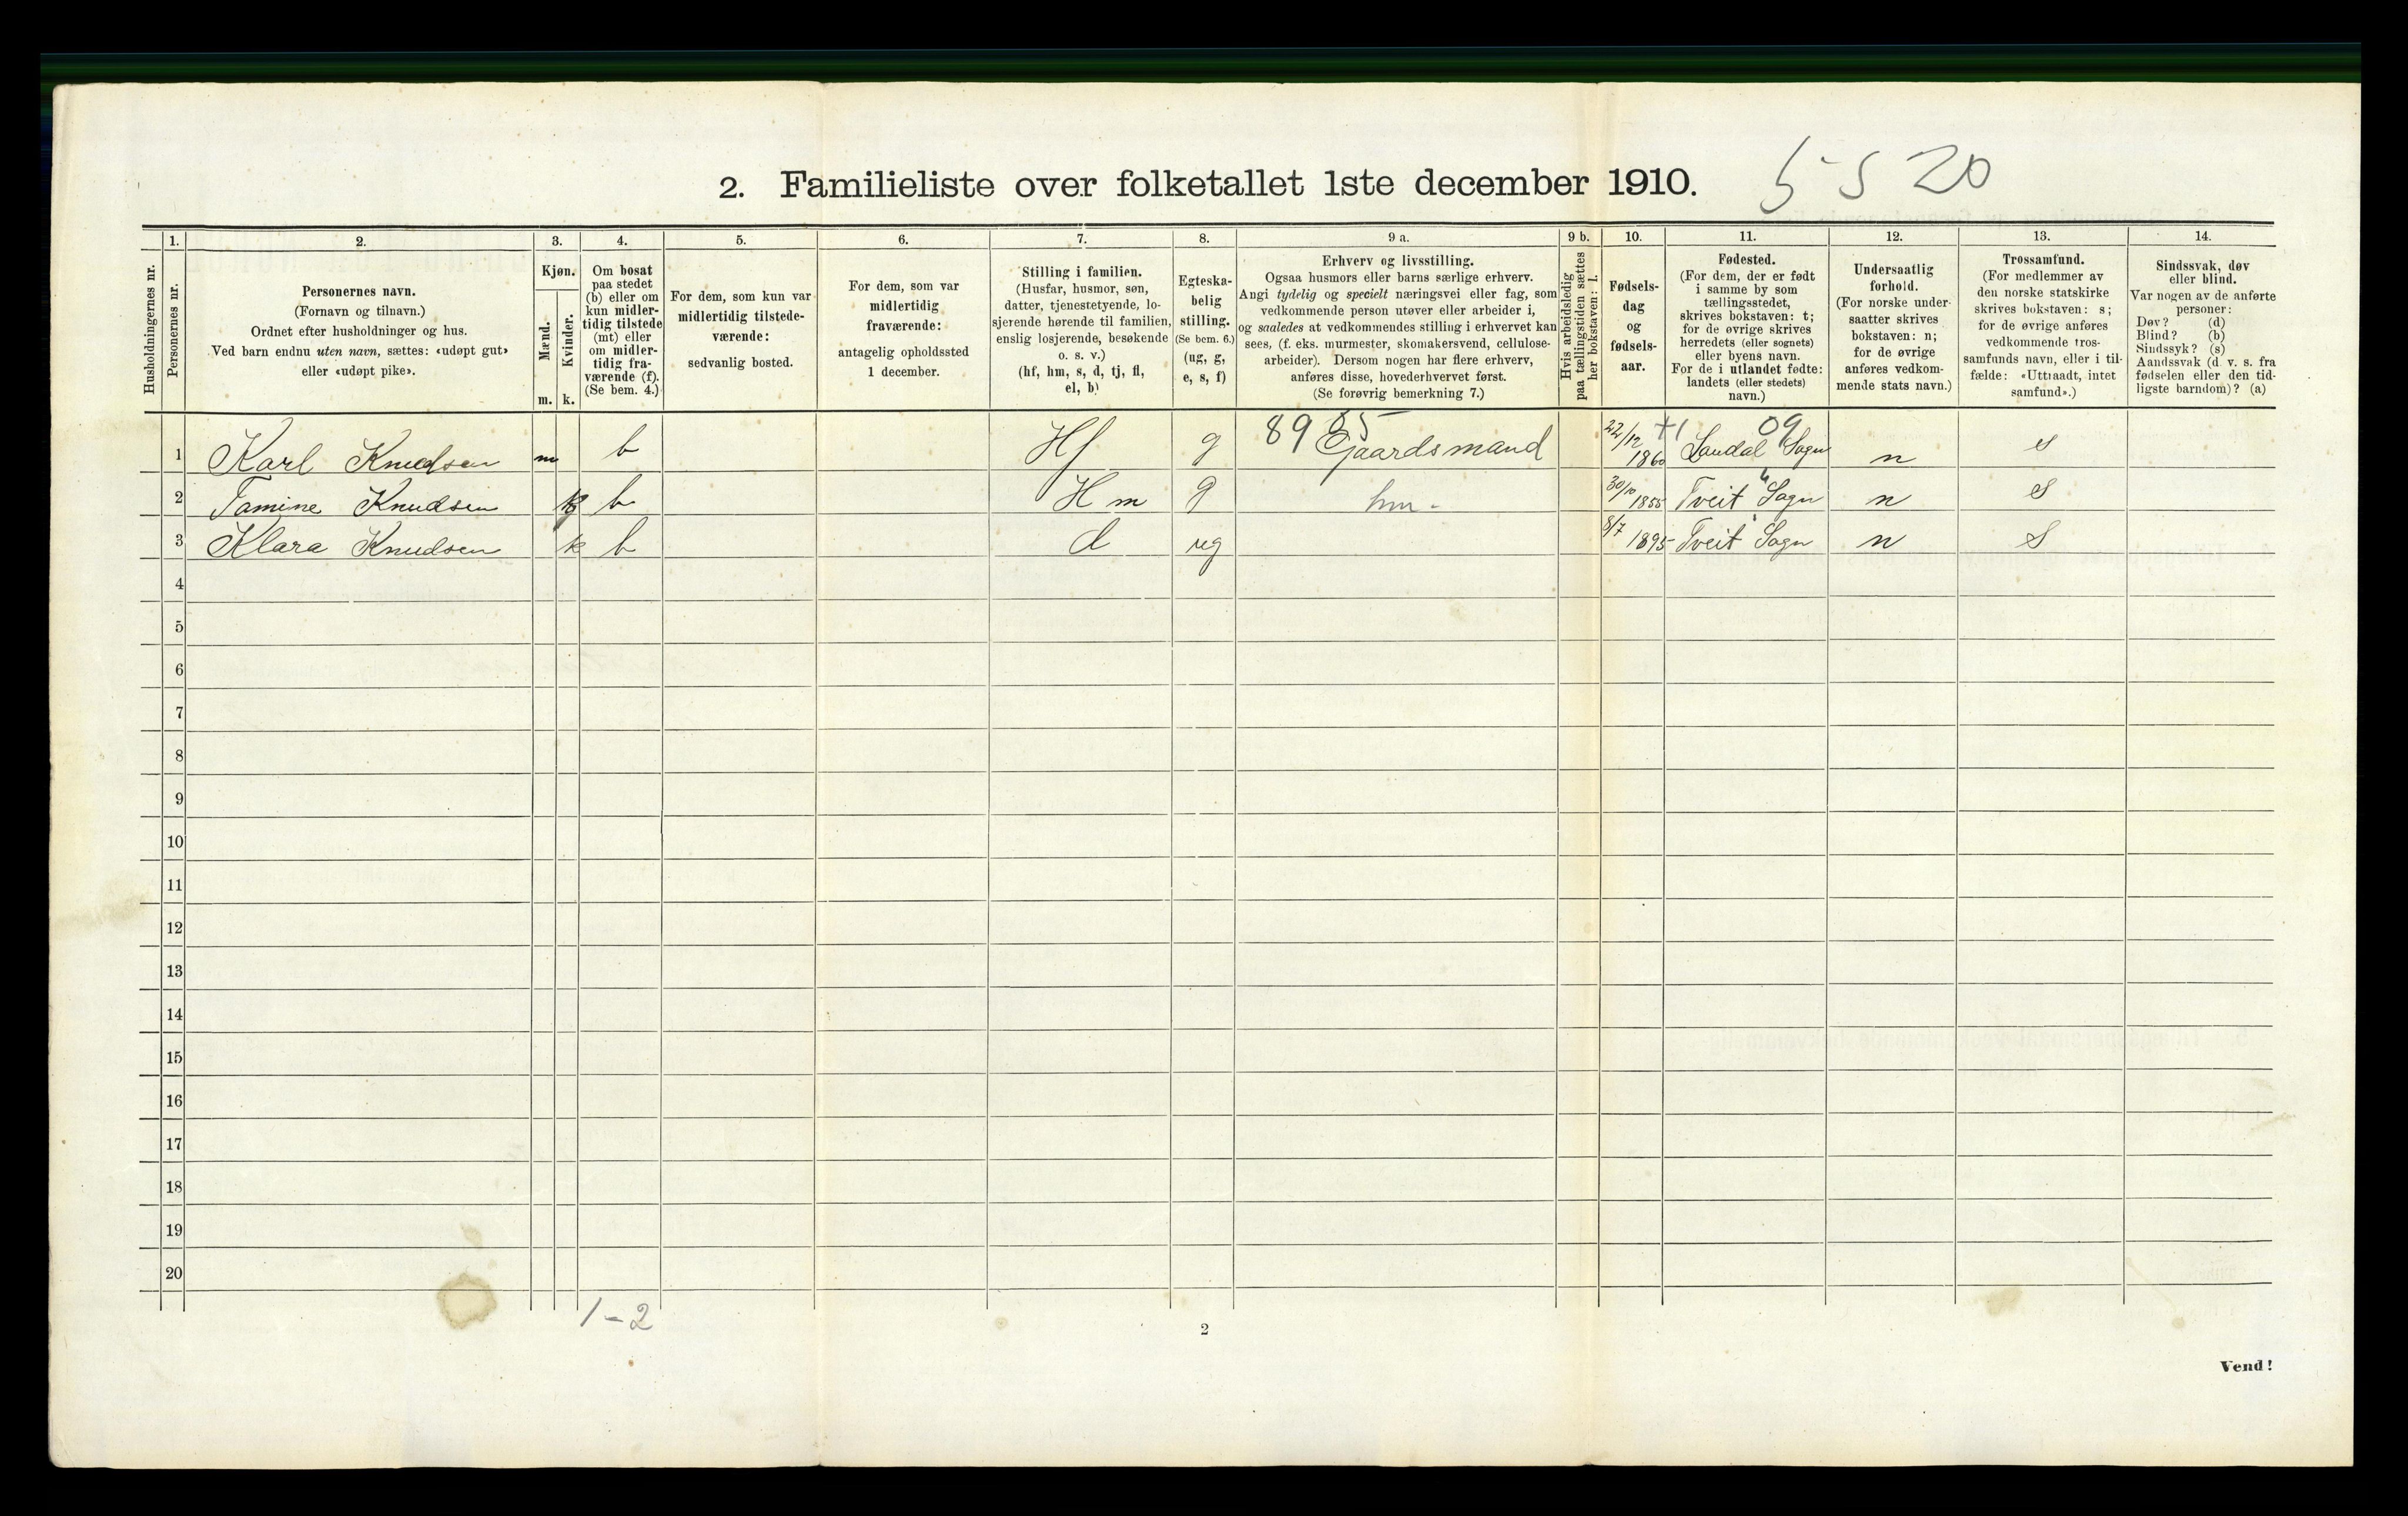 2. Familieliste over folketallet 1ste december 1910. 5520
1. 2. 3. 4. 5. 6. 7. 8. 9 a. 9 b. 10. 11. 12. 13. 14.
Husholdningernes nr.
Personernes nr.
Personernes navn.
(Fornavn og tilnavn.)
Ordnet efter husholdninger og hus.
Ved barn endnu uten navn, sættes: «udøpt gut»
eller «udøpt pike».
Kjøn.
Mænd.
Kvinder.
m. k.
Om bosat
paa stedet
(b) eller om
kun midler-
tidig tilstede
(mt) eller
om midler-
tidig fra-
værende (f).
(Se bem. 4.)
For dem, som kun var
midlertidig tilstede-
værende:
sedvanlig bosted.
For dem, som var
midlertidig
fraværende:
antagelig opholdssted
1 december.
Stilling i familien.
(Husfar, husmor, søn,
datter, tjenestetyende, lo-
sjerende hørende til familien,
enslig losjerende, besøkende
o. s. v.)
(hf, hm, s, d, tj, fl,
el, b)
Egteska-
belig
stilling.
(Se bem. 6.)
(ug, g,
e, s, f)
Erhverv og livsstilling.
Ogsaa husmors eller barns særlige erhverv.
Angi tydelig og specielt næringsvei eller fag, som
vedkommende person utøver eller arbeider i,
og saaledes at vedkommendes stilling i erhvervet kan
sees, (f. eks. murmester, skomakersvend, cellulose-
arbeider). Dersom nogen har flere erhverv,
anføres disse, hovederhvervet først.
(Se forøvrig bemerkning 7.)
Hvis arbeidsledig
paa tællingstiden sættes
her bokstaven: l.
Fødsels-
dag
og
fødsels-
aar.
Fødested.
(For dem, der er født
i samme by som
tællingsstedet,
skrives bokstaven: t;
for de øvrige skrives
herredets (eller sognets)
eller byens navn.
For de i utlandet fødte:
landets (eller stedets)
navn.)
Undersaatlig
forhold.
(For norske under-
saatter skrives
bokstaven: n;
for de øvrige
anføres vedkom-
mende stats navn.)
Trossamfund.
(For medlemmer av
den norske statskirke
skrives bokstaven: s;
for de øvrige anføres
vedkommende tros-
samfunds navn, eller i til-
fælde: «Uttraadt, intet
samfund».)
Sindssvak, døv
eller blind.
Var nogen av de anførte
personer:
Døv? (d)
Blind? (b)
Sindssyk? (s)
Aandssvak (d. v. s. fra
fødselen eller den tid-
ligste barndom)? (a)
1 Karl Knudsen m b Hf g Gaardsmand 22/12 1860 Sogn n s
2 Tamine Knudsen k b Hm g hm. 30/10 1855 Tveit Sogn n s
3 Klara Knudsen k b d ug 8/7 1895 Tveit Sogn n s
4
5
6
7
8
9
10
11
12
13
14
15
16
17
18
19
20
1-2
2
Vend!